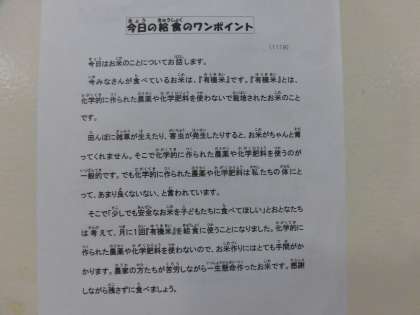 今日の給食のワンポイント
きょう きゅうしょく
今日はお米のことについてお話します。
今みなさんが食べているお米は、『有機米』です。『有機米』とは、
化学的に作られた農薬や化学肥料を使わないで栽培されたお米のこと
です。
田んぼに雑草が生えたり、害虫が発生したりすると、お米がちゃんと育
ってくれません。そこで化学的に作られた農薬や化学肥料を使うのが
一般的です。でも化学的に作られた農薬や化学肥料は私たちの体にと
って、あまり良くないない、と言われています。
そこで「少しでも安全なお米を子どもたちに食べてほしい」とおとなたち
は考えて、月に1回『有機米』を給食に使うことになりました。化学的に
作られた農薬や化学肥料を使わないので、お米作りにはとても手間がか
かります。農家の方たちが苦労しながら一生懸命作ったお米です。感謝
しながら残さずに食べましょう。